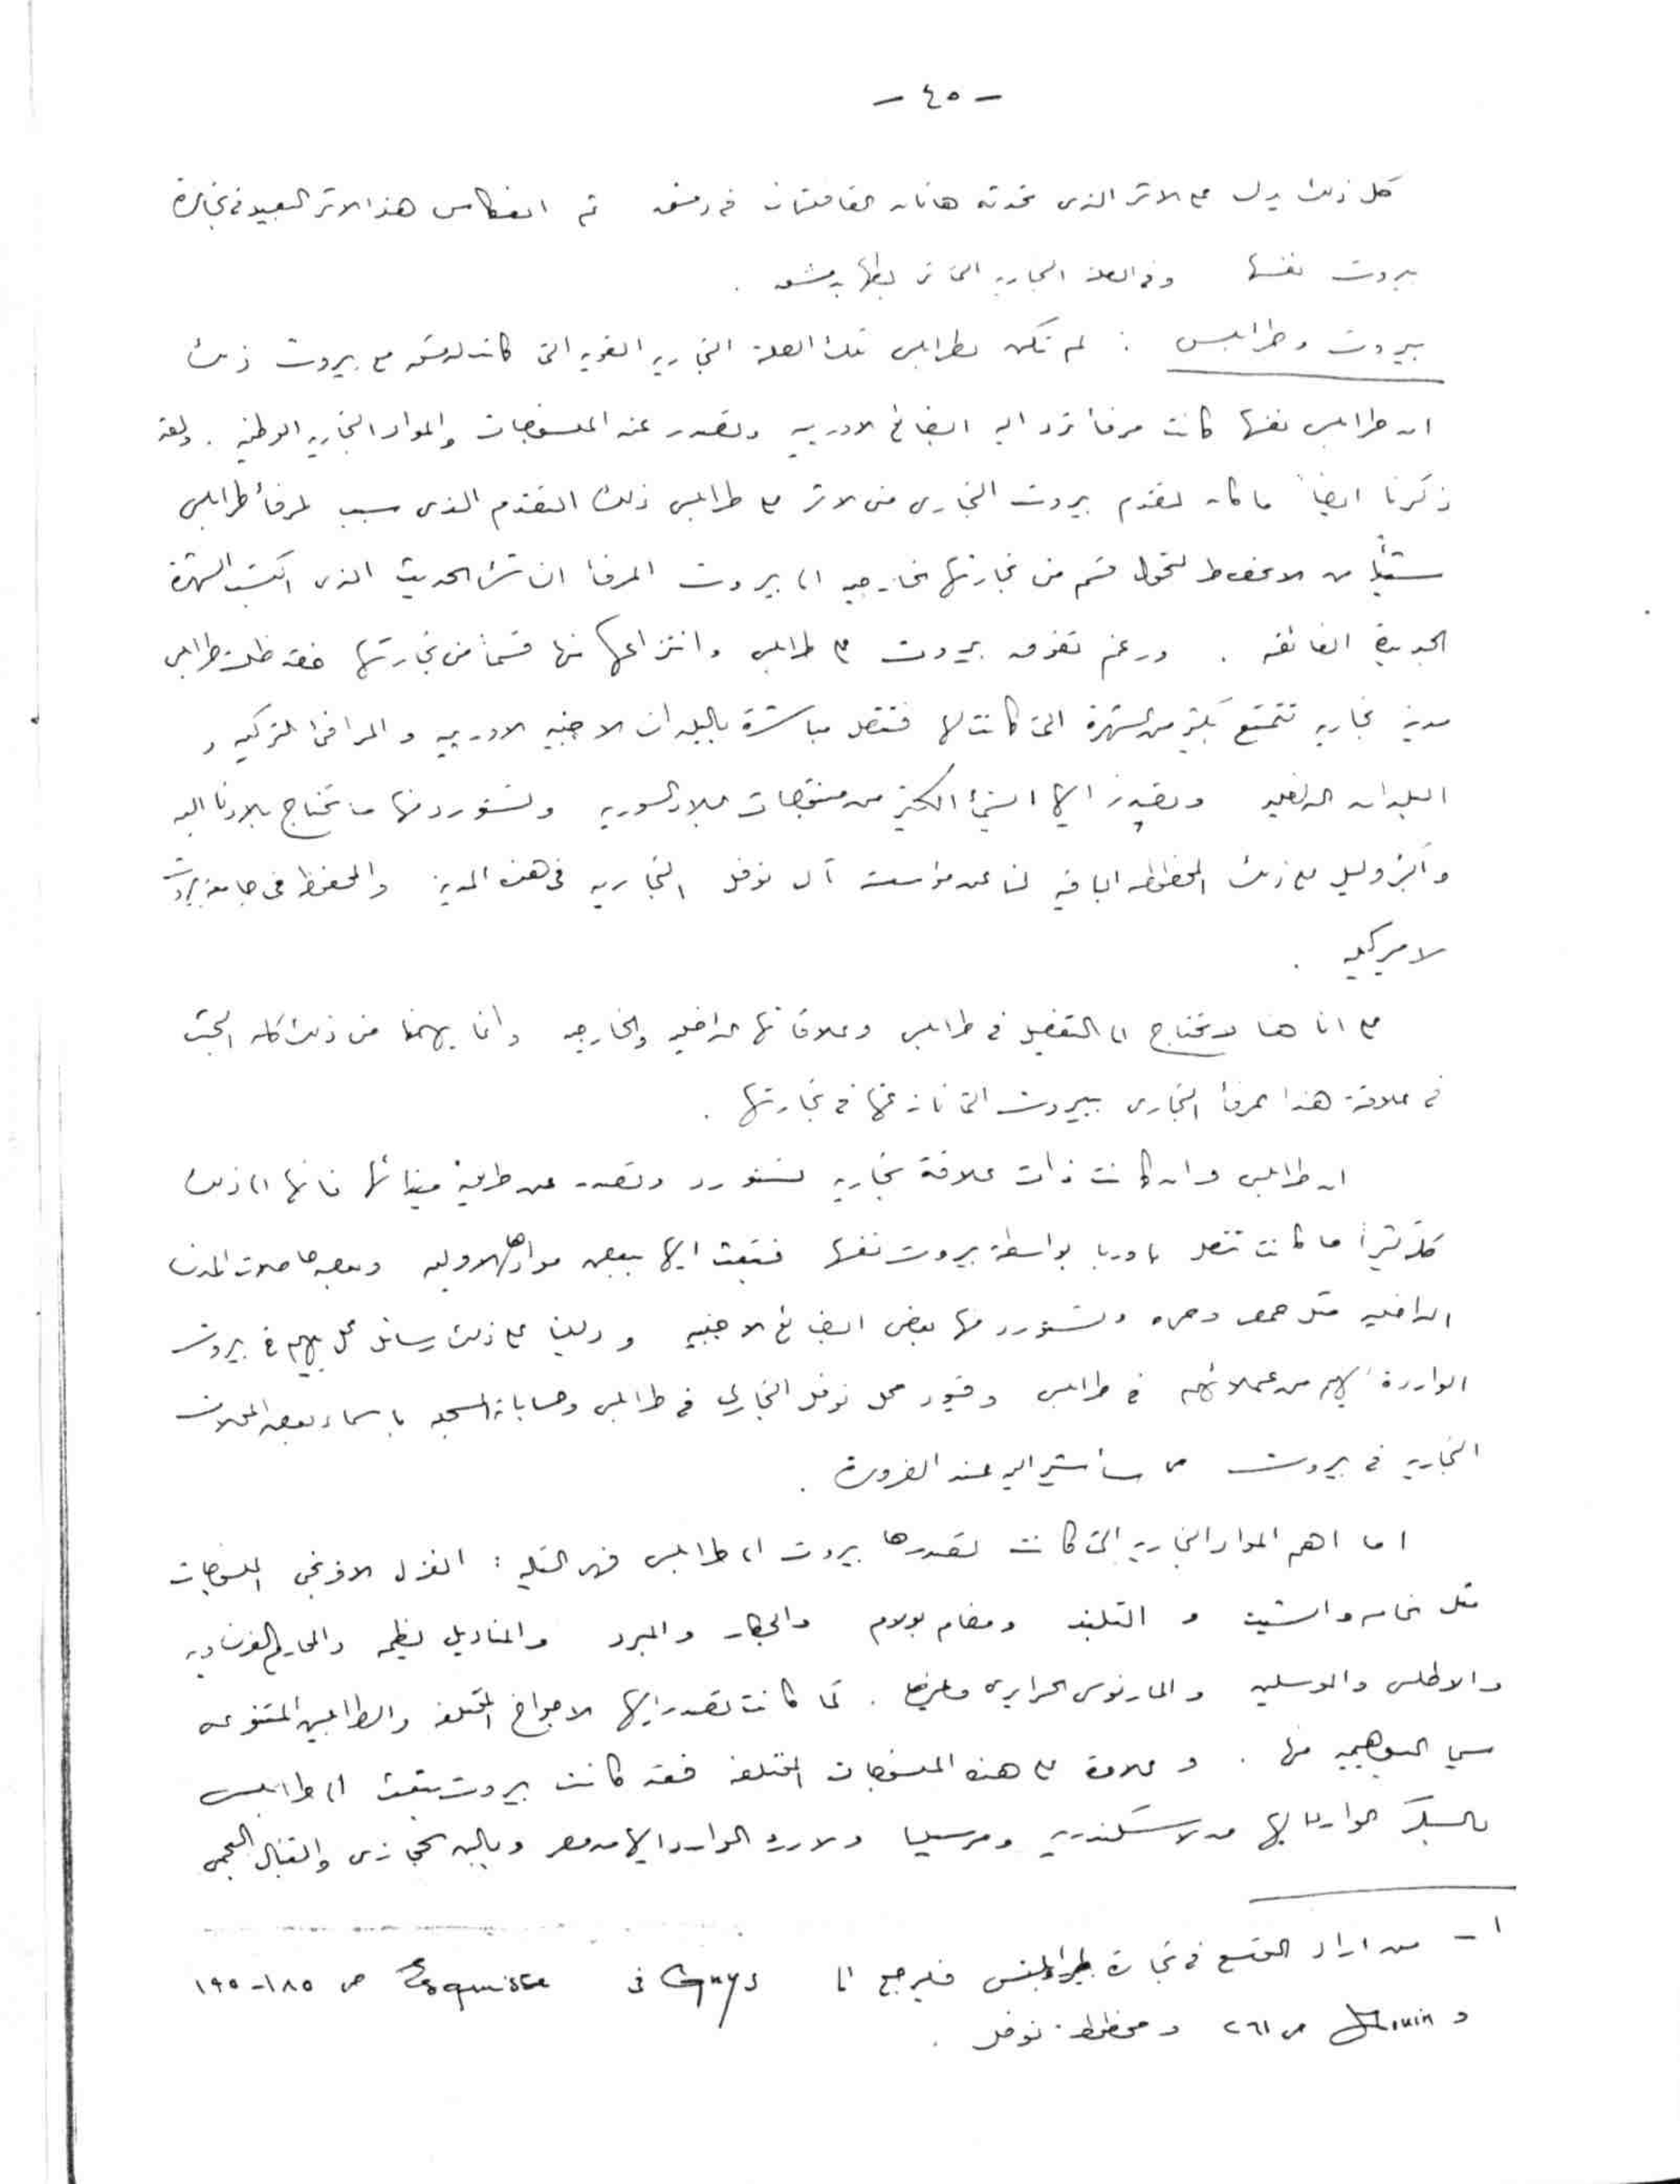 - ٤٥ -
كل ذلك يدل على الاثر الذى تحدثه هاتان القافلتان فى دمشق ثم انعكاس هذا الاثر البعيد فى تجارة
بيروت نفسها وفى الصلة التجاريه التى تربطها بدمشق .
بيروت وطرابلس : لم تكن لطرابلس تلك الصلة التجاريه القويه التى كانت لدمشق مع بيروت ذلك
ان طرابلس نفسها كانت مرفأ ترد اليه البضائع الاوربيه وتصدر عنه المنسوجات والمواد التجاريه الوطنيه . ولقد
ذكرنا ايضاً ما كان لتقدم بيروت التجارى من الاثر على طرابلس ذلك التقدم الذى سبب لمرفأ طرابلس
شيئاً من الانحطاط لتحول قسم من تجارتها الخارجيه الى بيروت المرفأ الناشئ الحديث الذى اكتسب الشهرة
الجديدة الفائقه . ورغم تفوق بيروت على طرابلس وانتزاعها منها قسماً من تجارتها فقد ظلت طرابلس
مدينة تجاريه تتمتع بكثير من الشهرة التى كانت لها فتتصل مباشرة بالبلدان الاجنبيه الاوربيه والمرافئ التركيه و
البلدان الداخليه وتصدر اليها الشئ الكثير من منتوجات البلاد السوريه وتستورد منها ما تحتاج بلادنا اليه
واكبر دليل على ذلك المخطوطه الباقيه لنا عن مؤسسة آل نوفل التجاريه فى هذه المدينة والمحفوظه فى جامعة بيروت
الاميركيه .
على انا هنا لا نحتاج الى التفصيل فى طرابلس وعلاقاتها الداخليه والخارجيه وانما يهمنا من ذلك كله البحث
فى علاقة هذا المرفأ التجارى ببيروت التى نازعتها فى تجارتها .
ان طرابلس وان كانت ذات علاقة تجاريه تستورد وتصدر عن طريق مينائها فانها الى ذلك
كله كثيراً ما كانت تتصل باوربا بواسطة بيروت نفسها فتبعث اليها ببعض موادها الاوليه وبعض حاصلات المدن
الداخليه مثل حمص وحماه وتستورد منها بعض البضائع الاجنبيه ودليلنا على ذلك رسائل محل بيهم فى بيروت
الواردة اليهم من عملائهم فى طرابلس وقيود محل نوفل التجارى فى طرابلس وحساباته المسجله باسماء بعض المحلات
التجاريه فى بيروت مما سأشير اليه عند الضرورة .
اما اهم المواد التجاريه التى كانت تصدرها بيروت الى طرابلس فهى التاليه : الغزل الافرنجى المنسوجات
مثل الخامه والشيت و ومقام بولام والمناديل والمحارم الفرنساويه
والاطلس والموسلين الحرايرى وغيرها . كما كانت تصدر اليها الاجواخ المختلفه والطرابيش المتنوعه
سيما منها . وعلاوة على هذه المنسوجات المختلفه فقد كانت بيروت تبعث الى طرابلس
بالسكر الوارد اليها من الاسكندريه ومرسيليا والارز الوارد اليها من مصر وبالبن الحجازى والتنباك العجمى
١ - من اراد التوسع فى تجارة طرابلس فليرجع الى Guys فى Esquisse ص ١٨٥-١٩٥
و ص ٢٦١ ومخطوطة نوفل .